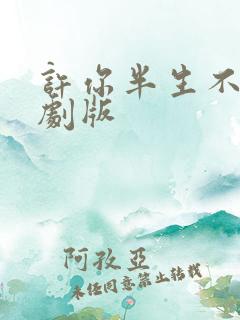 許你半生不
劇版
阿孜亞
未经同意禁止转载